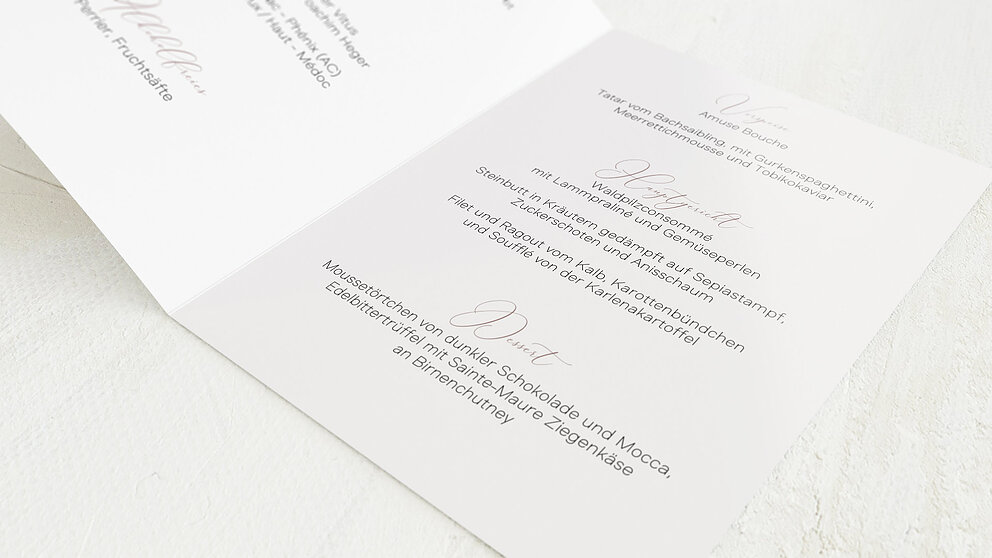 r Vitus
oachim Heger
c - Phénix (AC)
ux / Haut - Médoc
Perrier, Fruchtsäfte
Vorspeise
Amuse Bouche
Tatar vom Bachsaibling, mit Gurkenspaghettini,
Meerrettichmousse und Tobikokaviar
Hauptgericht
Waldpilzconsommé
mit Lammpraliné und Gemüseperlen
Steinbutt in Kräutern gedämpft auf Sepiastampf,
Zuckerschoten und Anisschaum
Filet und Ragout vom Kalb, Karottenbündchen
und Soufflé von der Karlenakartoffel
Dessert
Moussetörtchen von dunkler Schokolade und Mocca,
Edelbittertrüffel mit Sainte-Maure Ziegenkäse
an Birnenchutney